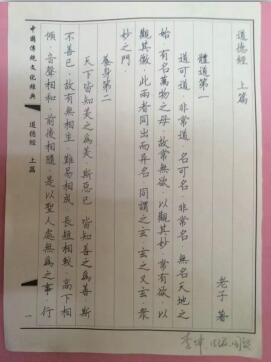 道德經 上篇
老子 著
體道第一
道可道．非常道．名可名．非常名．無名天地之
始．有名萬物之母．故常無欲．以觀其妙．常有欲．以
觀其徼．此兩者同出而異名．同謂之玄．玄之又玄．眾
妙之門．
養身第二
天下皆知美之為美．斯惡已．皆知善之為善．斯
不善已．故有無相生．難易相成．長短相較．高下相
傾．音聲相和．前後相隨．是以聖人處無為之事．行
中國傳統文化經典
道德經 上篇
一